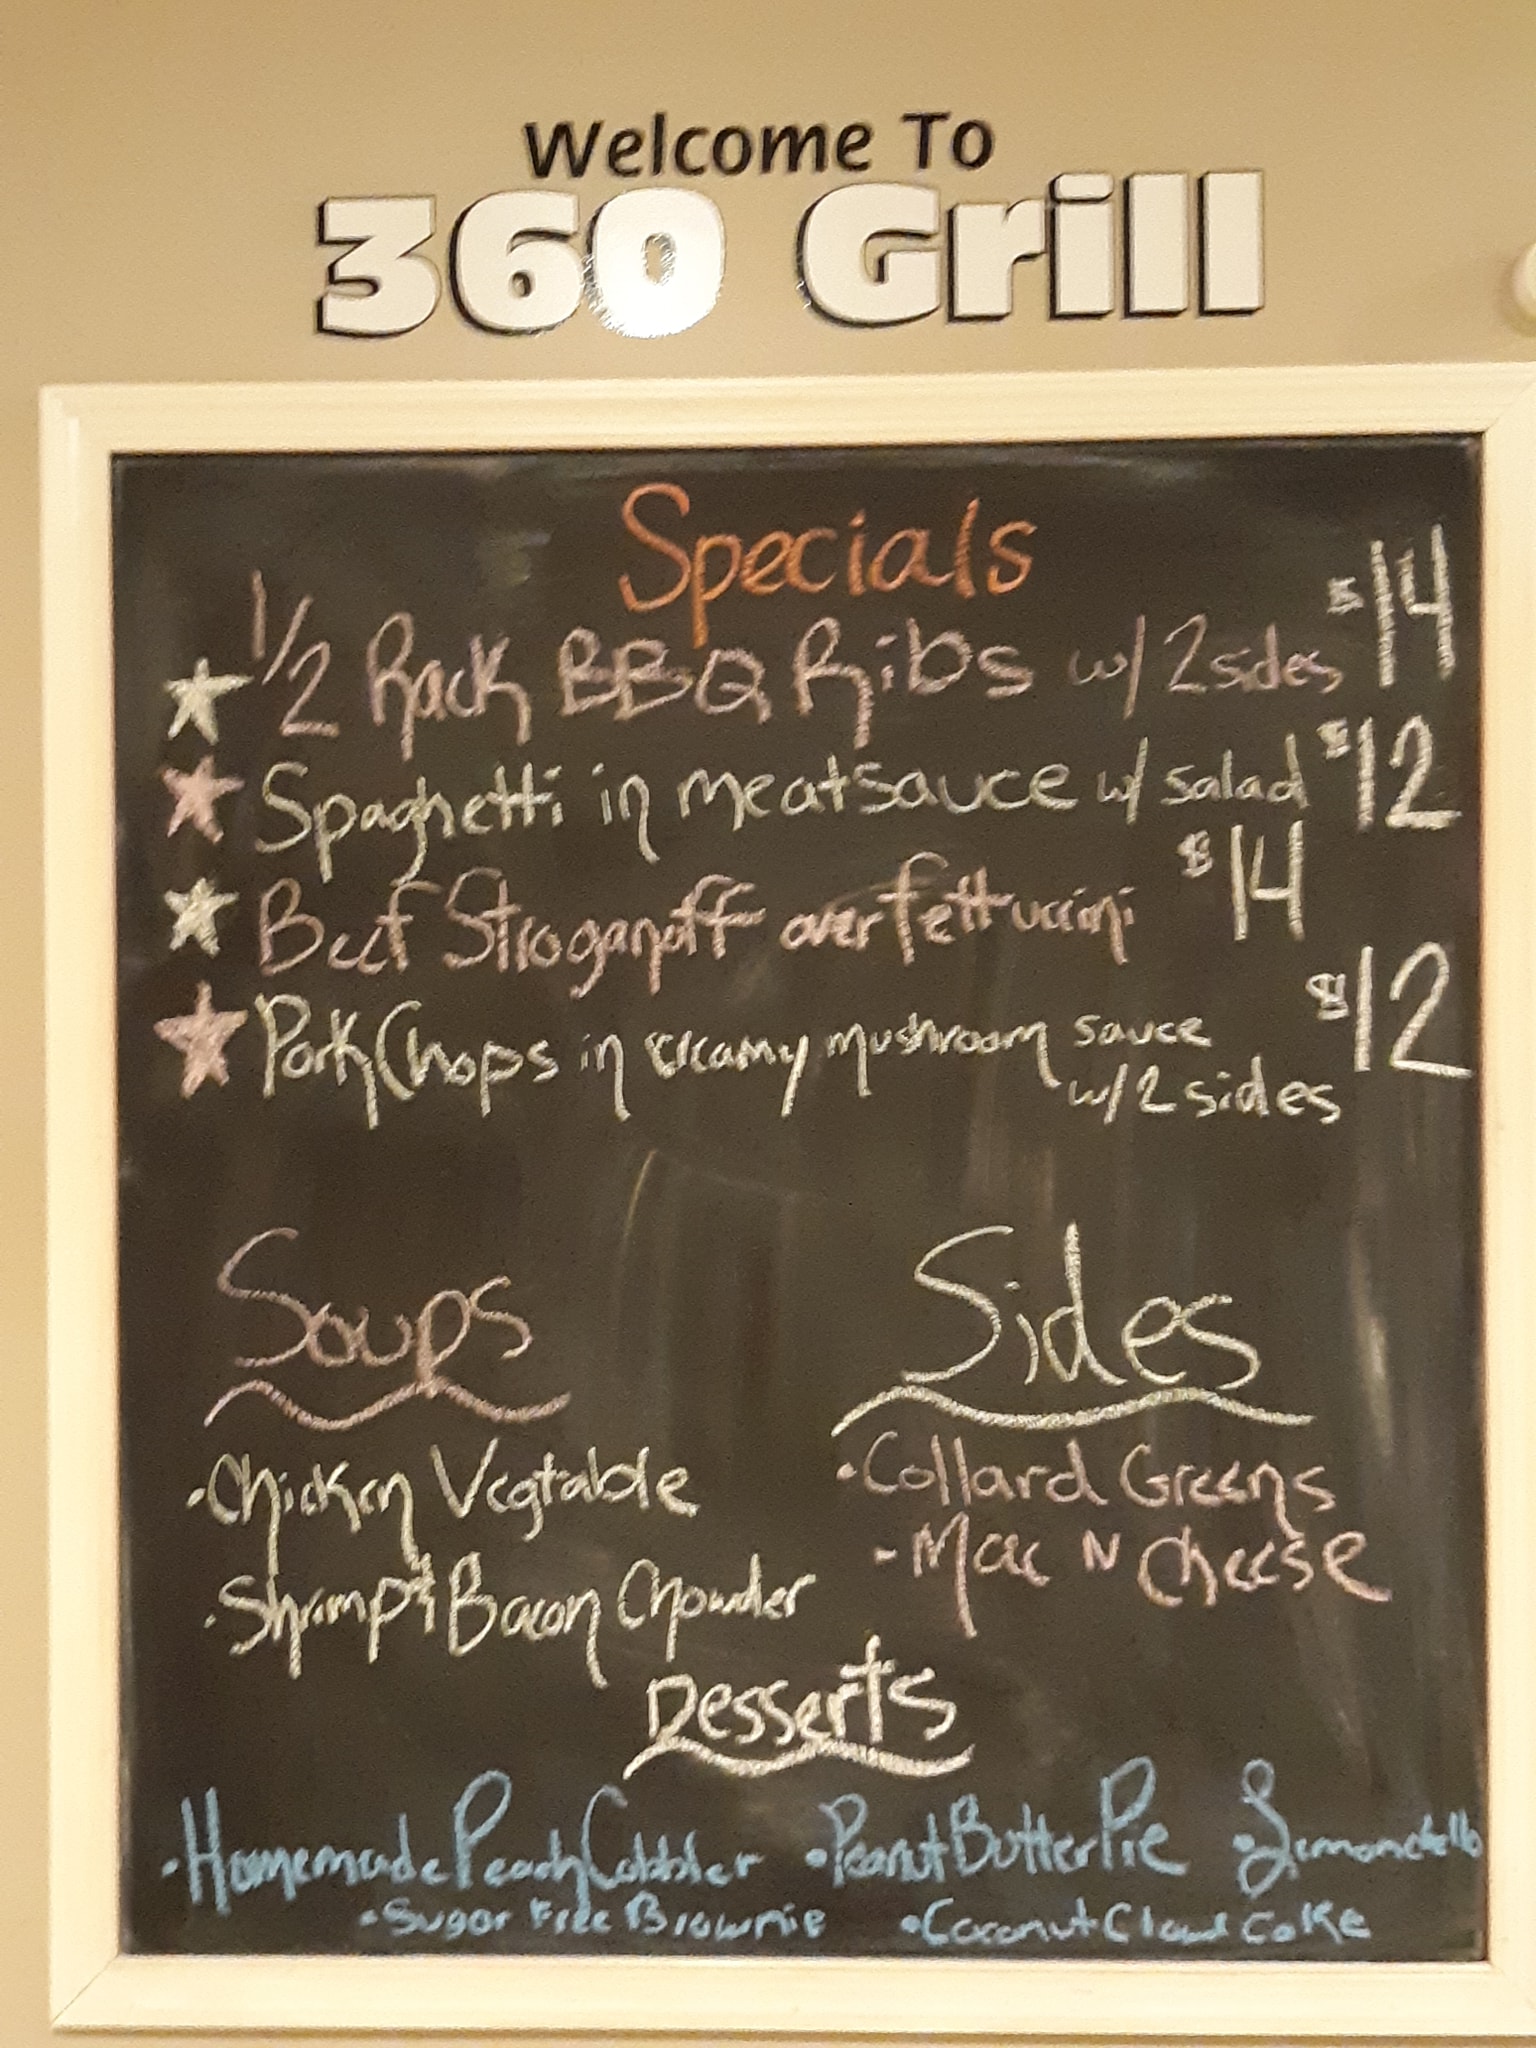 Welcome To
360 Grill
Specials
1/2 Rack BBQ Ribs w/ 2 sides $14
Spaghetti in meatsauce w/ salad $12
Beef Stroganoff over fettuccini $14
Pork Chops in creamy mushroom sauce $12
w/ 2 sides
Soups
Sides
·Chicken Vegtable
·Shrimp & Bacon Chowder
·Collard Greens
·Mac N Cheese
Desserts
·Homemade Peach Cobbler ·Peanut Butter Pie ·Limoncello
·Sugar Free Brownie ·Coconut Cloud Cake